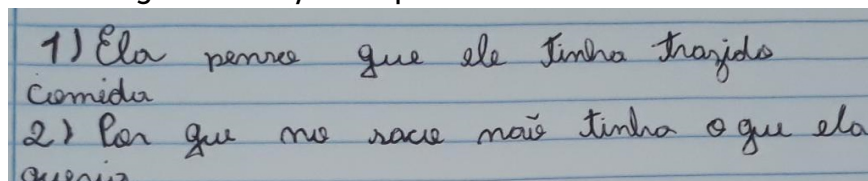 1) Ela pensou que ele tinha trazido
comida
2) Por que no saco não tinha o que ela
queria